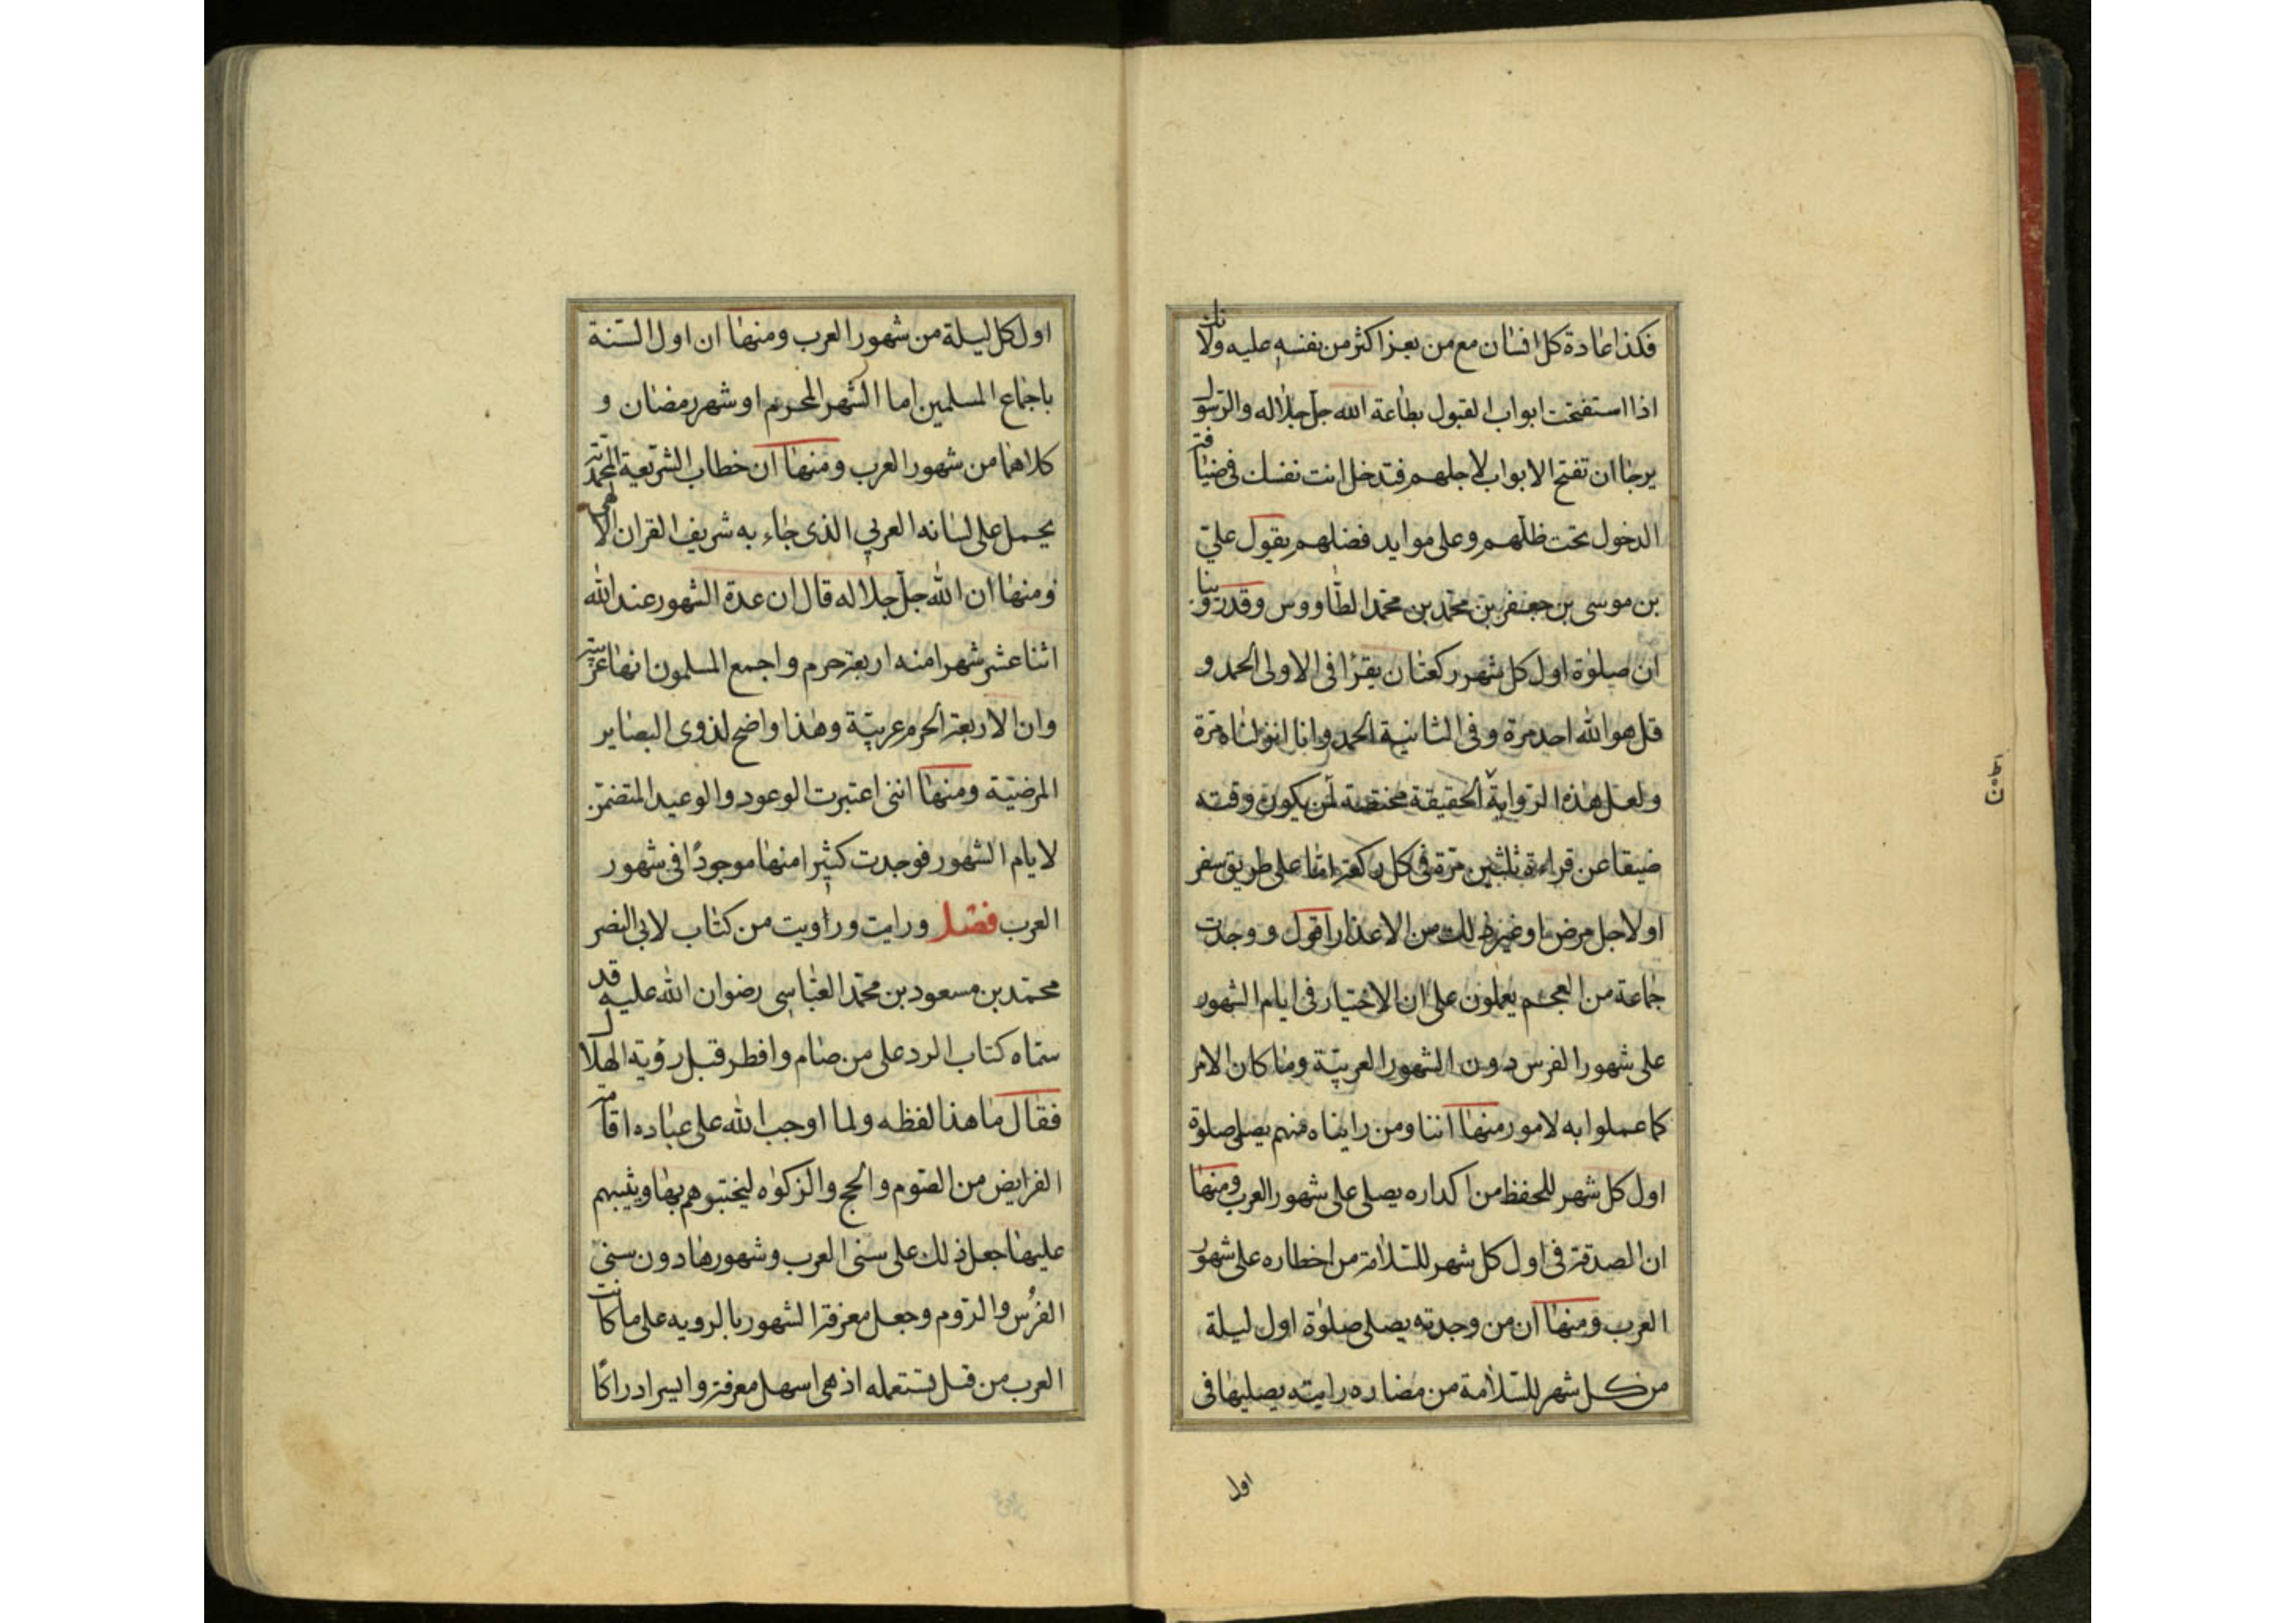 فكذا عادة كل انسان مع من يعز اكثر من نفسه عليه ولانك
اذا استفتحت ابواب القبول بطاعة الله جل جلاله والرسول
يرجا ان تفتح الابواب لاجلهم فتدخل انت نفسك في ضيافة
الدخول تحت ظلهم وعلى موايد فضلهم يقول علي
بن موسى بن جعفر بن محمد بن محمد الطاووس وقد روينا
ان صلوة اول كل شهر ركعتان يقرا في الاولى الحمد و
قل هو الله احد مرة وفي الثانية الحمد وانا انزلناه مرة
ولعل هذه الرواية الحقيقة مختصة لمن يكون وقته
ضيقا عن قراءة ثلثين مرة في كل ركعة اما على طريق سفر
او لاجل مرض او غير ذلك من الاعذار اقول ووجدت
جماعة من العجم يعملون على ان الاختيار في ايام الشهور
على شهور الفرس دون الشهور العربية وما كان الامر
كما عملوا به لامور منها اننا ومن رايناه منهم يصلي صلوة
اول كل شهر للحفظ من اكداره يصلي على شهور العرب ومنها
ان الصدقة في اول كل شهر للسلامة من اخطاره على شهور
العرب ومنها ان من وجدته يصلي صلوة اول ليلة
من كل شهر للسلامة من مضاره رايته يصليها في
اول
اول كل ليلة من شهور العرب ومنها ان اول السنة
باجماع المسلمين اما الشهر المحرم او شهر رمضان و
كلاهما من شهور العرب ومنها ان خطاب الشريعة المحمدية
يحمل على لسانه العربي الذي جاء به شريف القران الالهي
ومنها ان الله جل جلاله قال ان عدة الشهور عند الله
اثنا عشر شهرا منه اربعة حرم واجمع المسلمون انها عربية
وان الاربعة الحرم عربية وهذا واضح لذوي البصاير
المرضية ومنها انني اعتبرت الوعود والوعيد المتضمن
لايام الشهور فوجدت كثيرا منها موجودًا في شهور
العرب فصل ورايت ورويت من كتاب لابي النصر
محمد بن مسعود بن محمد العياشي رضوان الله عليه قد
سماه كتاب الرد على من صام وافطر قبل رؤية الهلال
فقال ما هذا لفظه ولما اوجب الله على عباده اقامة
الفرايض من الصوم والحج والزكوة ليختبرهم بها ويثيبهم
عليها جعل ذلك على سني العرب وشهورها دون سني
الفرس والروم وجعل معرفة الشهور بالرويه على ما كانت
العرب من قبل تستعمله اذ هي اسهل معرفة وايسر ادراكا